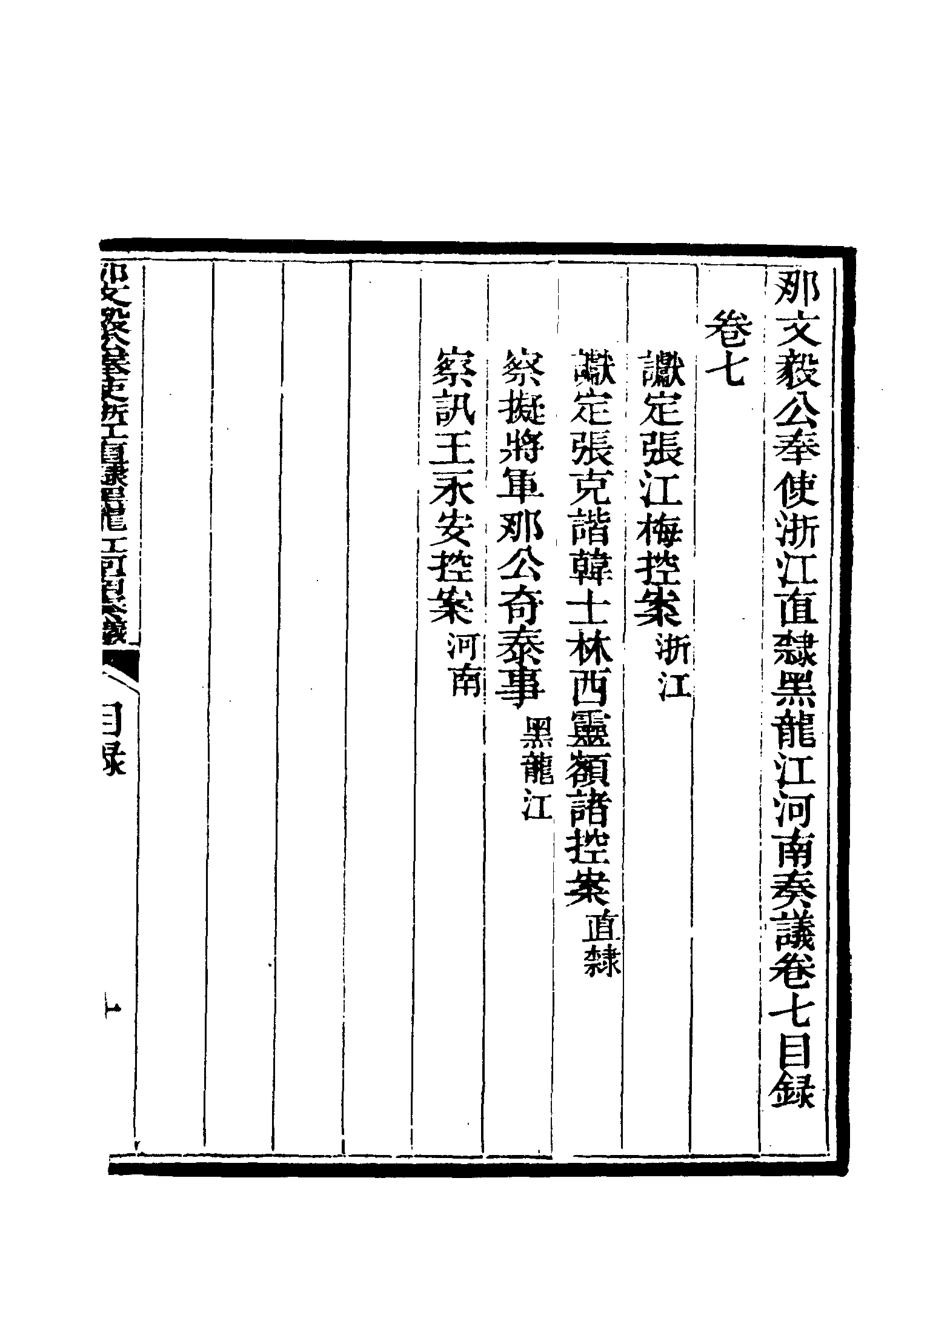 那文毅公奉使浙江直隸黑龍江河南奏議卷七目録
卷七
讞定張江梅控案 浙江
讞定張克諧韓士林西靈額諸控案 直隸
察擬將軍那公奇泰事 黑龍江
察訊王永安控案 河南
那文毅公奉使浙江直隸黑龍江河南奏議
目録